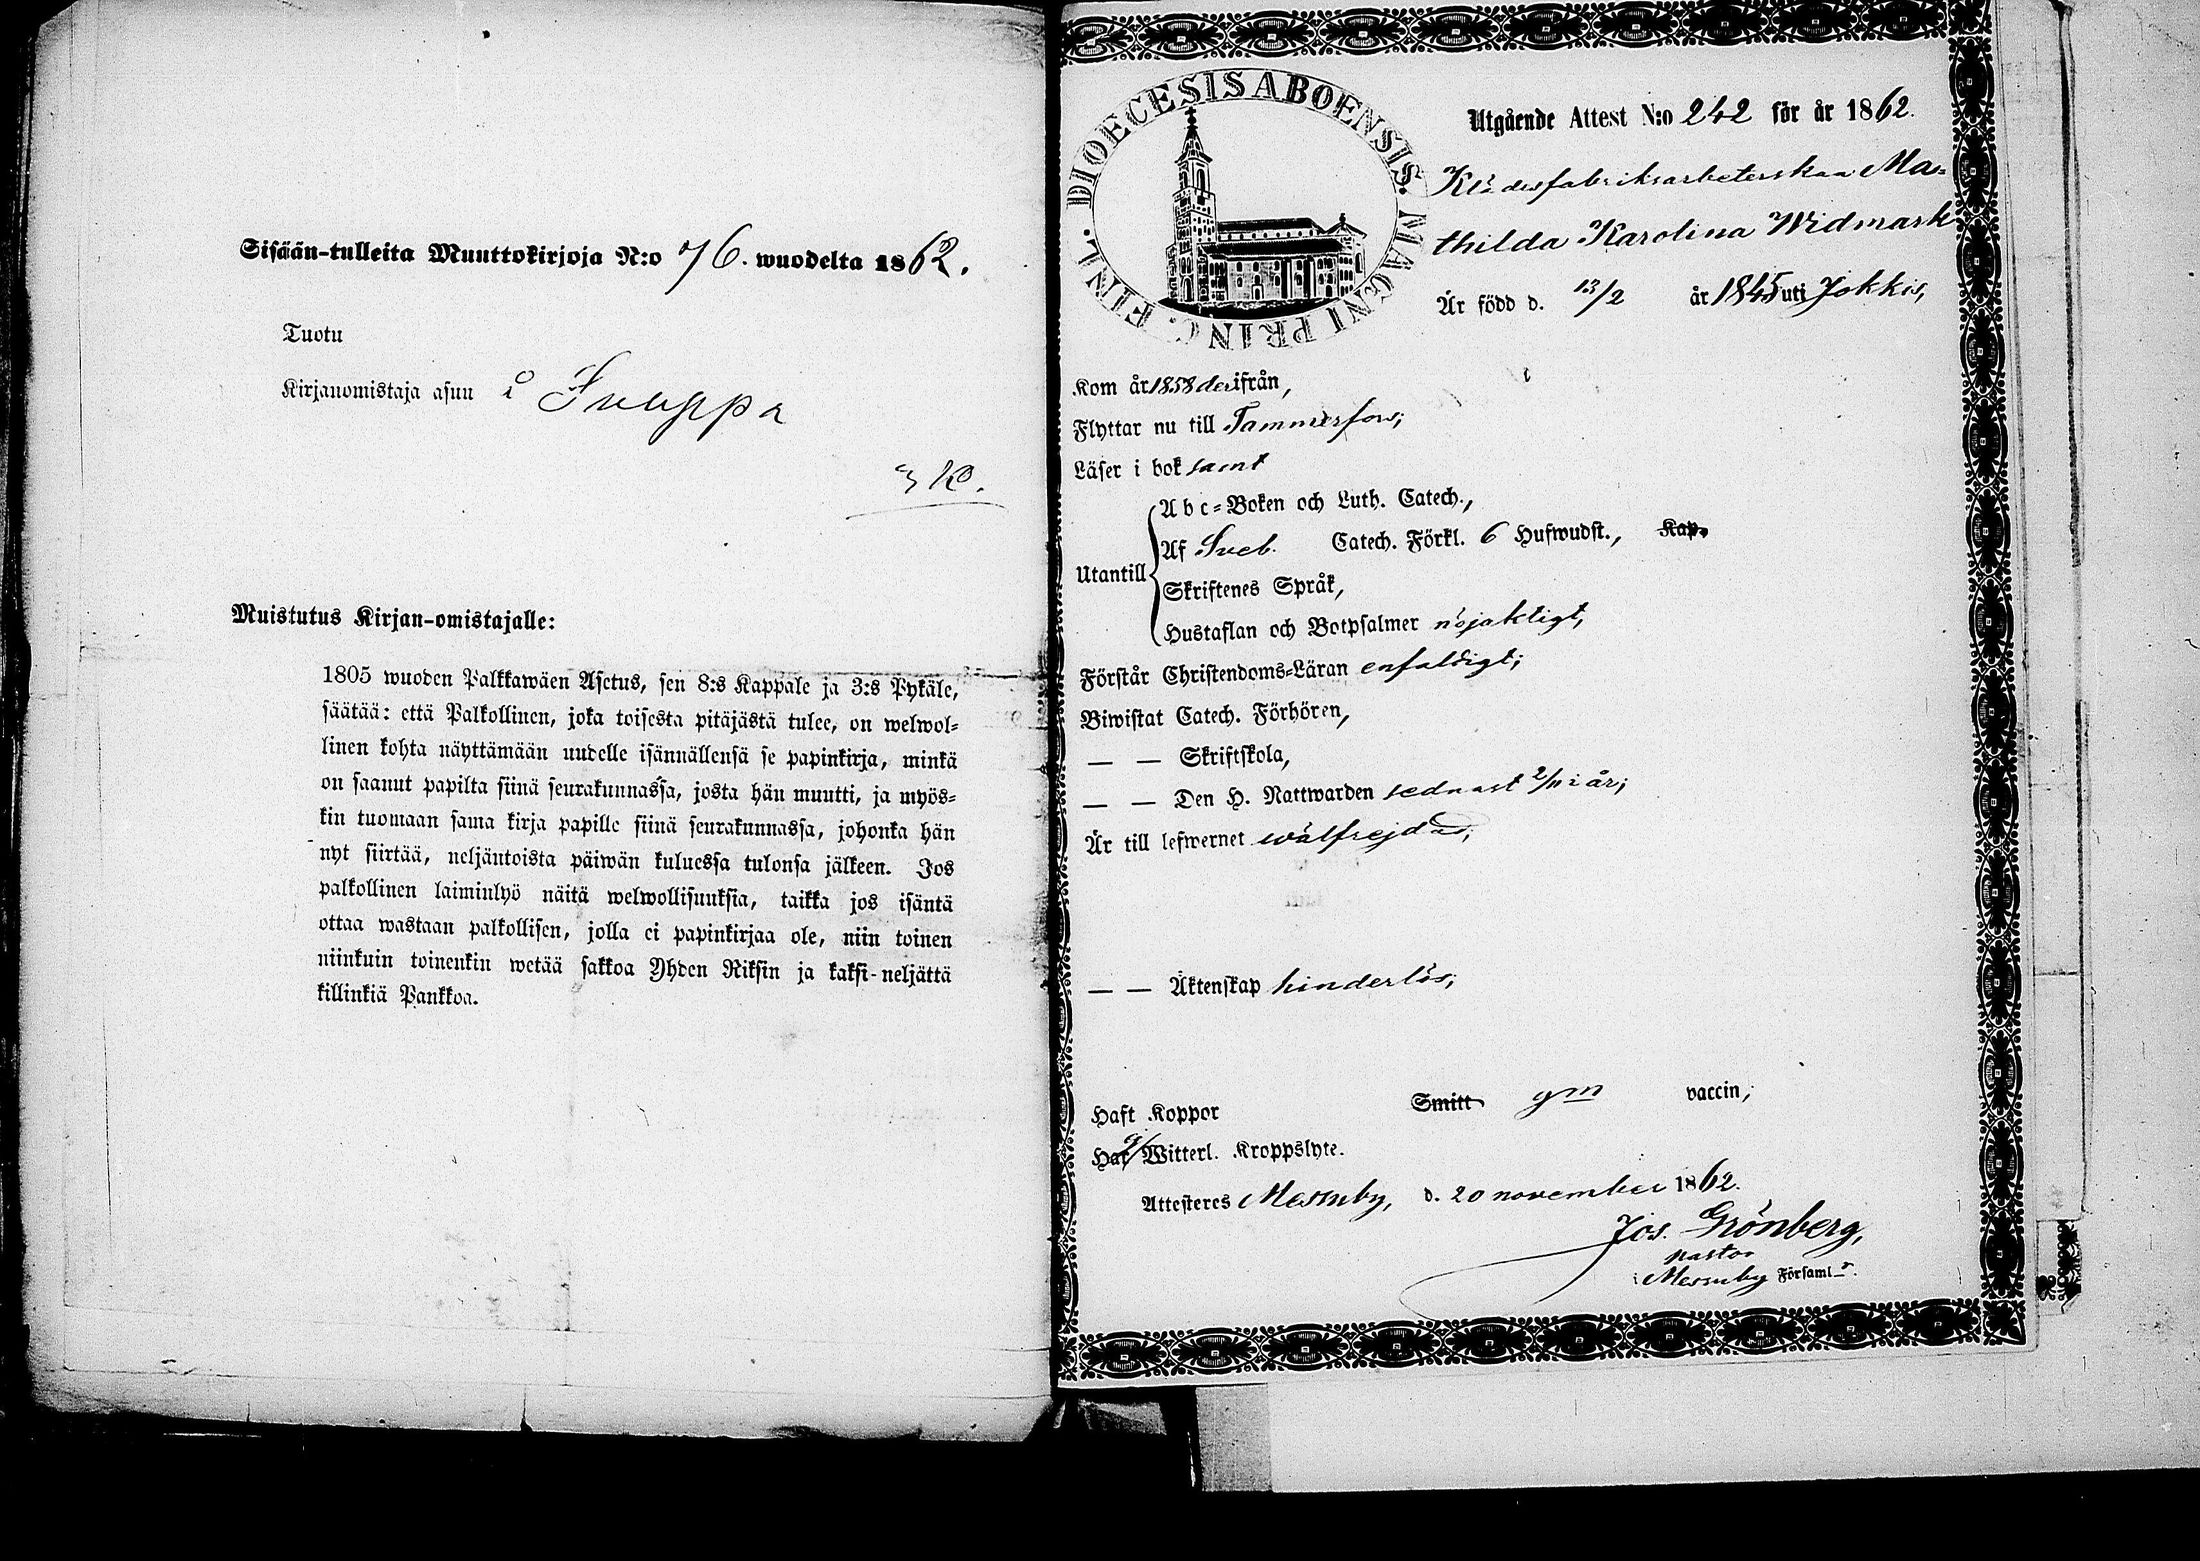 Sisään-tulleita Muuttokirjoja N:o 76. wuodelta 1862.
Tuotu
Kirjanomistaja asuu å
Muistutus Kirjan-omistajalle:
1805 wuoden Palkkawäen Asetus, sen 8:s Kappale ja 3:s Pykäle,
säätää: että Palkollinen, joka toisesta pitäjästä tulee, on welwol-
linen kohta näyttämään uudelle isännällensä se papinkirja, minkä
on saanut papilta siinä seurakunnassa, josta hän muutti, ja myös-
kin tuomaan sama kirja papille siinä seurakunnassa, johonka hän
nyt siirtää, neljäntoista päiwän kuluessa tulonsa jälkeen. Jos
palkollinen laiminlyö näitä welwollisuuksia, taikka jos isäntä
ottaa wastaan palkollisen, jolla ei papinkirjaa ole, niin toinen
niinkuin toinenkin wetää sakkoa Yhden Riksin ja kaksi-neljättä
killinkiä Pankkoa.
DIOECESIS ABOENSIS. MAGNI PRINC. FINL.
Utgående Attest N:o 242 för år 1862.
Klädesfabriksarbeterskan Ma-
thilda Karolina Widmark
Är född d. 13/2 år 1845 uti Jokkis,
Kom år 1858 derifrån,
Flyttar nu till Tammerfors;
Läser i bok samt
Abc-Boken och Luth. Catech.,
Af Sveb. Catech. Förkl. 6 Hufwudst., Kap.
Utantill
Skriftenes Språk,
Hustaflan och Botpsalmer nöjaktigt,
Förstår Christendoms-Läran enfaldigt;
Biwistat Catech. Förhören,
— — Skriftskola,
— — Den H. Nattwarden sednast 2/11 i år;
Är till lefwernet wälfrejdad;
— — Äktenskap hinderlös;
Haft Koppor Smitt gm vaccin;
Har ej Witterl. Kroppslyte.
Attesteres Messuby, d. 20 november 1862.
Jos. Grönberg,
Pastor
i Messuby Församl-g.